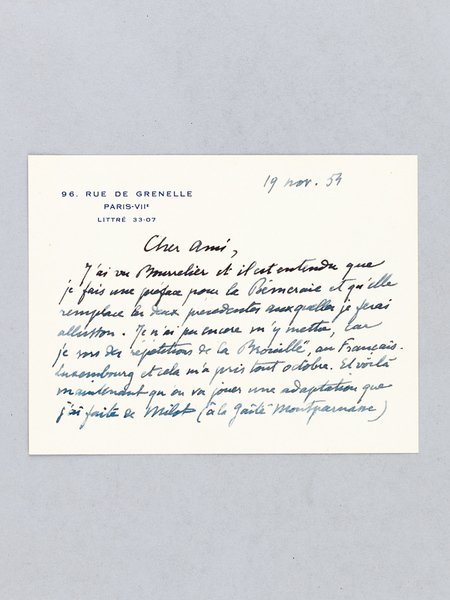 96. RUE DE GRENELLE
PARIS-VIIᵉ
LITTRÉ 33-07
19 nov. 59
Cher ami,
J'ai vu Bourrelier et il est entendu que
je fais une préface pour la et qu'elle
remplace les deux précédentes auxquelles je ferai
allusion. Je n'ai pu encore m'y mettre, car
je sors des répétitions de la "Brouille", au Français-
Luxembourg et cela m'a pris tout octobre. Et voilà
maintenant qu'on va jouer une adaptation que
j'ai faite de (à la Gaîté Montparnasse)